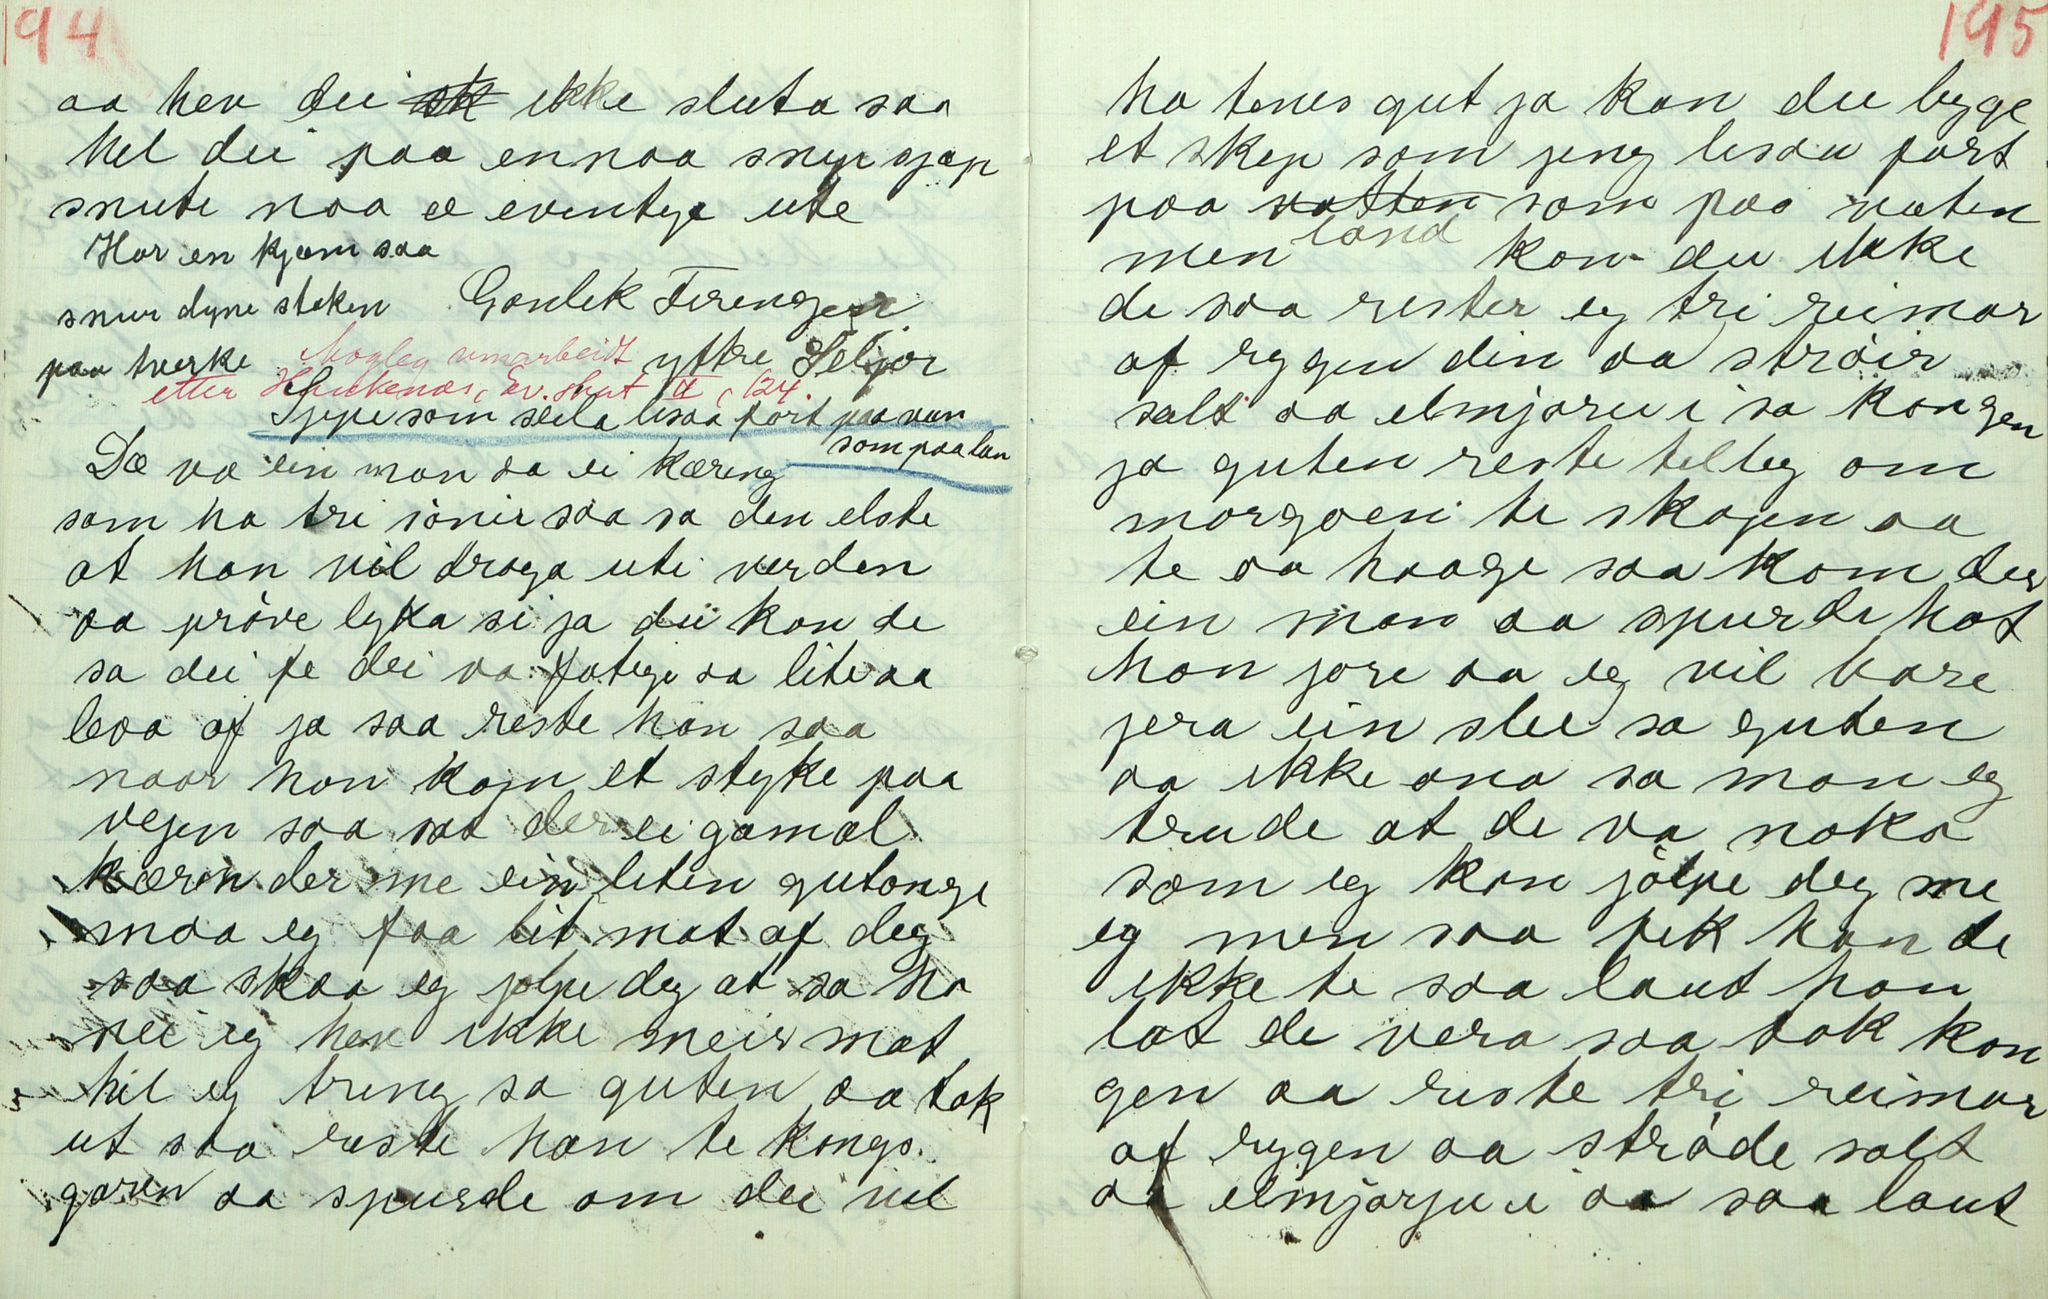 194
aa hev dei sk ikke sluta saa
hel dei paa ennaa snip snap
snute naa æ eventye ute
Har en kjæm saa
snur dyne steken Gonlek Firengen
paa tverke yttre Seljor
Mogleg umarbeidt
etter Haukenæs, Ev. skat II, 124.
Sjepe som seila lisaa fort paa van
som paa lan
Dæ va ein man aa ei kæring
som ha tri sönir saa sa den elste
at han vil draga uti verden
aa pröve lyka si ja du kan de
sa dei fe dei va fatige aa lite aa
leva af ja saa reste han saa
naar han kom et styke paa
vejen saa sat der ei gamal
kærin der me ein liten gutonge
maa eg faa lit mat af deg
saa skaa eg jolpe deg at sa ho
nei eg hev ikke meir mat
hel eg treng sa guten aa tok
ut saa reste han te kongs
garen aa spurde om dei vil
195
ha tenes gut ja kan du byge
et skep som jeng lisaa fort
paa vatten som paa vaten
land
men kan du ikke
de saa rester eg tri reimar
af rygen din aa ströir
salt aa elmjøru i sa kongen
ja guten reste telleg om
morgoen te skogen aa
te aa haage saa kom der
ein man aa spurde hot
han jore aa eg vil bare
jera ein slee sa guten
aa ikke ana sa man eg
trude at de va noka
som eg kan jölpe deg me
eg men saa fek han de
ikke te saa laut han
lat de vera saa tok kon
gen aa riste tri reimar
af rygen aa ströde salt
aa elmjørju i aa saa laut